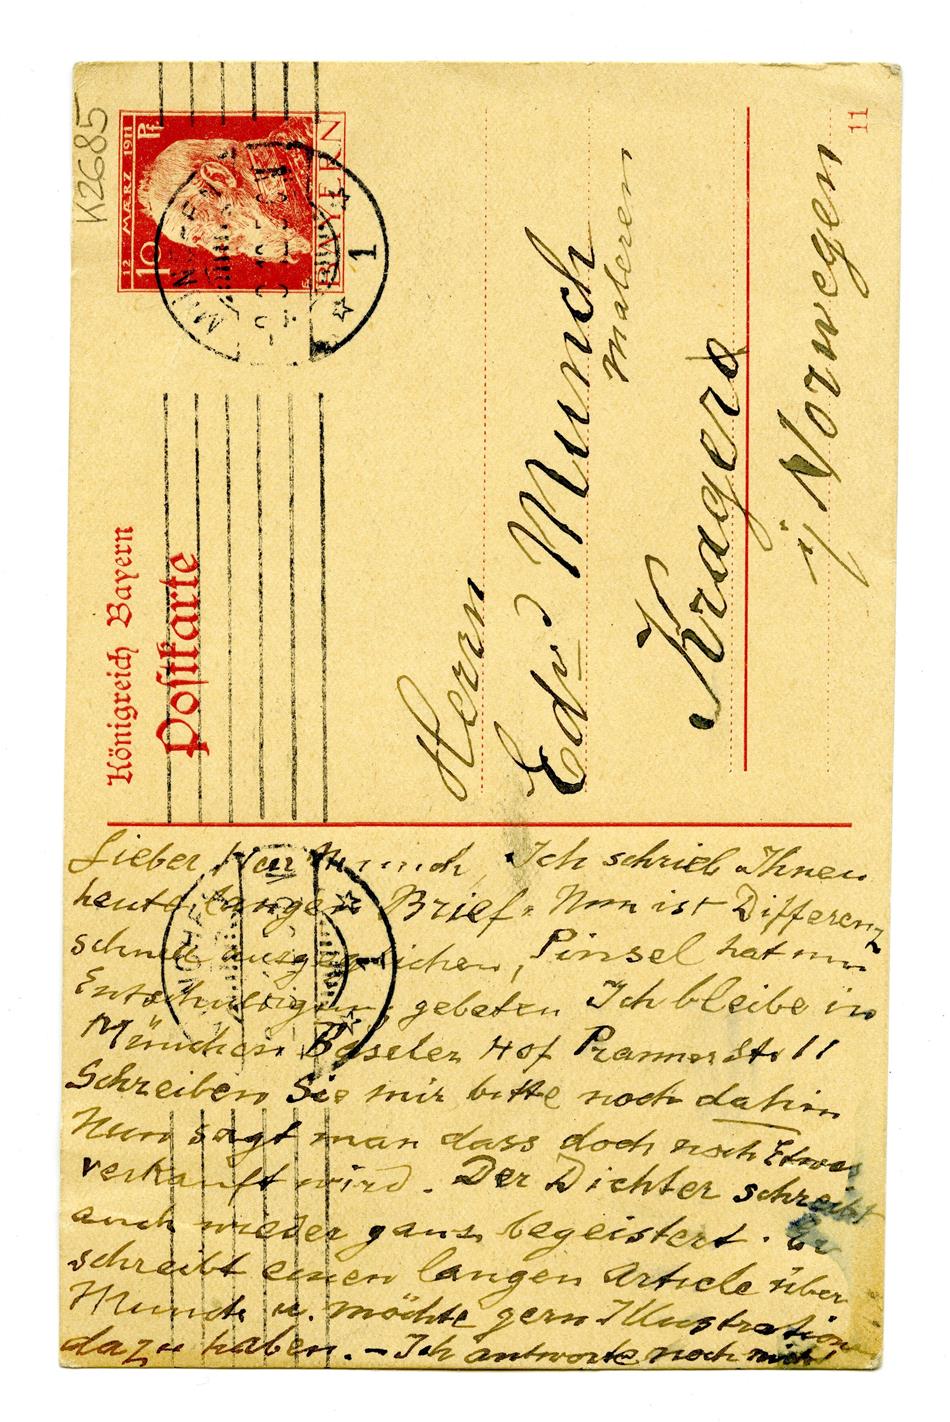 K2685
12 MÆRZ 1911
10 Pf
BAYERN
MÜNCHEN
1
Königreich Bayern
Postkarte
11
Herrn
Edv Munch
maleren
Kragerø
i/ Norwegen
Lieber Herr Munch, Ich schrieb Ihnen
heute langen Brief. Nun ist Differenz
schnell ausgeglichen, Pinsel hat um
Entschuldigung gebeten Ich bleibe in
München Baseler Hof Prannerstr 11
Schreiben Sie mir bitte noch dahin
Nun sagt man dass doch noch Etwas
verkauft wird. Der Dichter schreibt
auch wieder ganz begeistert. Er
schreibt einen langen Article über
Munch u. möchte gern Illustration
dazu haben. – Ich antworte noch nicht
MÜNCHEN
1